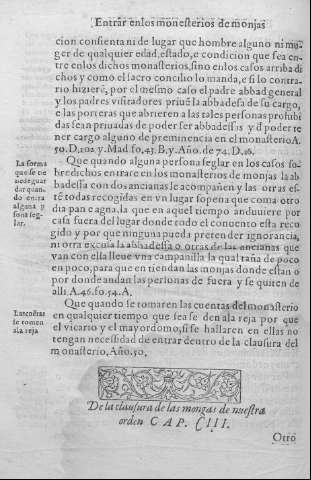 Entrar enlos monesterios de monjas
cion consienta ni de lugar que hombre alguno ni mu-
ger de qualquier edad, estado, e condicion que sea en-
tre enlos dichos monasterios, sino enlos casos arriba di
chos y como el sacro concilio lo manda, e si lo contra-
rio hiziere, por el mesmo caso el padre abbad general
y los padres visitadores priuē la abbadessa de su cargo,
e las porteras que abrieren a las tales personas prohibi
das sean priuadas de poder ser abbadessas y đ poder te
ner cargo alguno de preminencia en el monasterio A.
50. D, 102. y. Mad fo, 43. B. y. Año. de 74. D. 16.
La forma
que se tie
ne de guar
dar quan-
do entra
alguna p
sona seg-
lar.
Que quando alguna persona seglar en los casos so-
bredichos entrare en los monasterios de monjas la ab
badessa con dos ancianas le acompañen y las otras es-
tē todas recogidas en vn lugar sopena que coma otro
dia pan e agna, la que en aquel tiempo anduuiere por
casa fuera del lugar donde todo el conuento esta reco
gido y por que ninguna pueda pretender ignorancia,
ni otra escusa la abbadessa o otras de las ancianas que
van con ella lleue vna campanilla la qual taña de poco
en poco, para que en tiendan las monjas donde estan o
por donde andan las personas de fuera y se quiten de
alli A. 46. fo. 54. A.
Las cuētas
se tomen
a la reja
Que quando se tomaren las cuentas del monasterio
en qualquier tiempo que sea se den a la reja por que
el vicario y el mayordomo, si se hallaren en ellas no
tengan necessidad de entrar dentro de la clausura del
monasterio, Año. 50,
De la clausura de las mongas de nuestra
orden CAP. CIII.
Otro